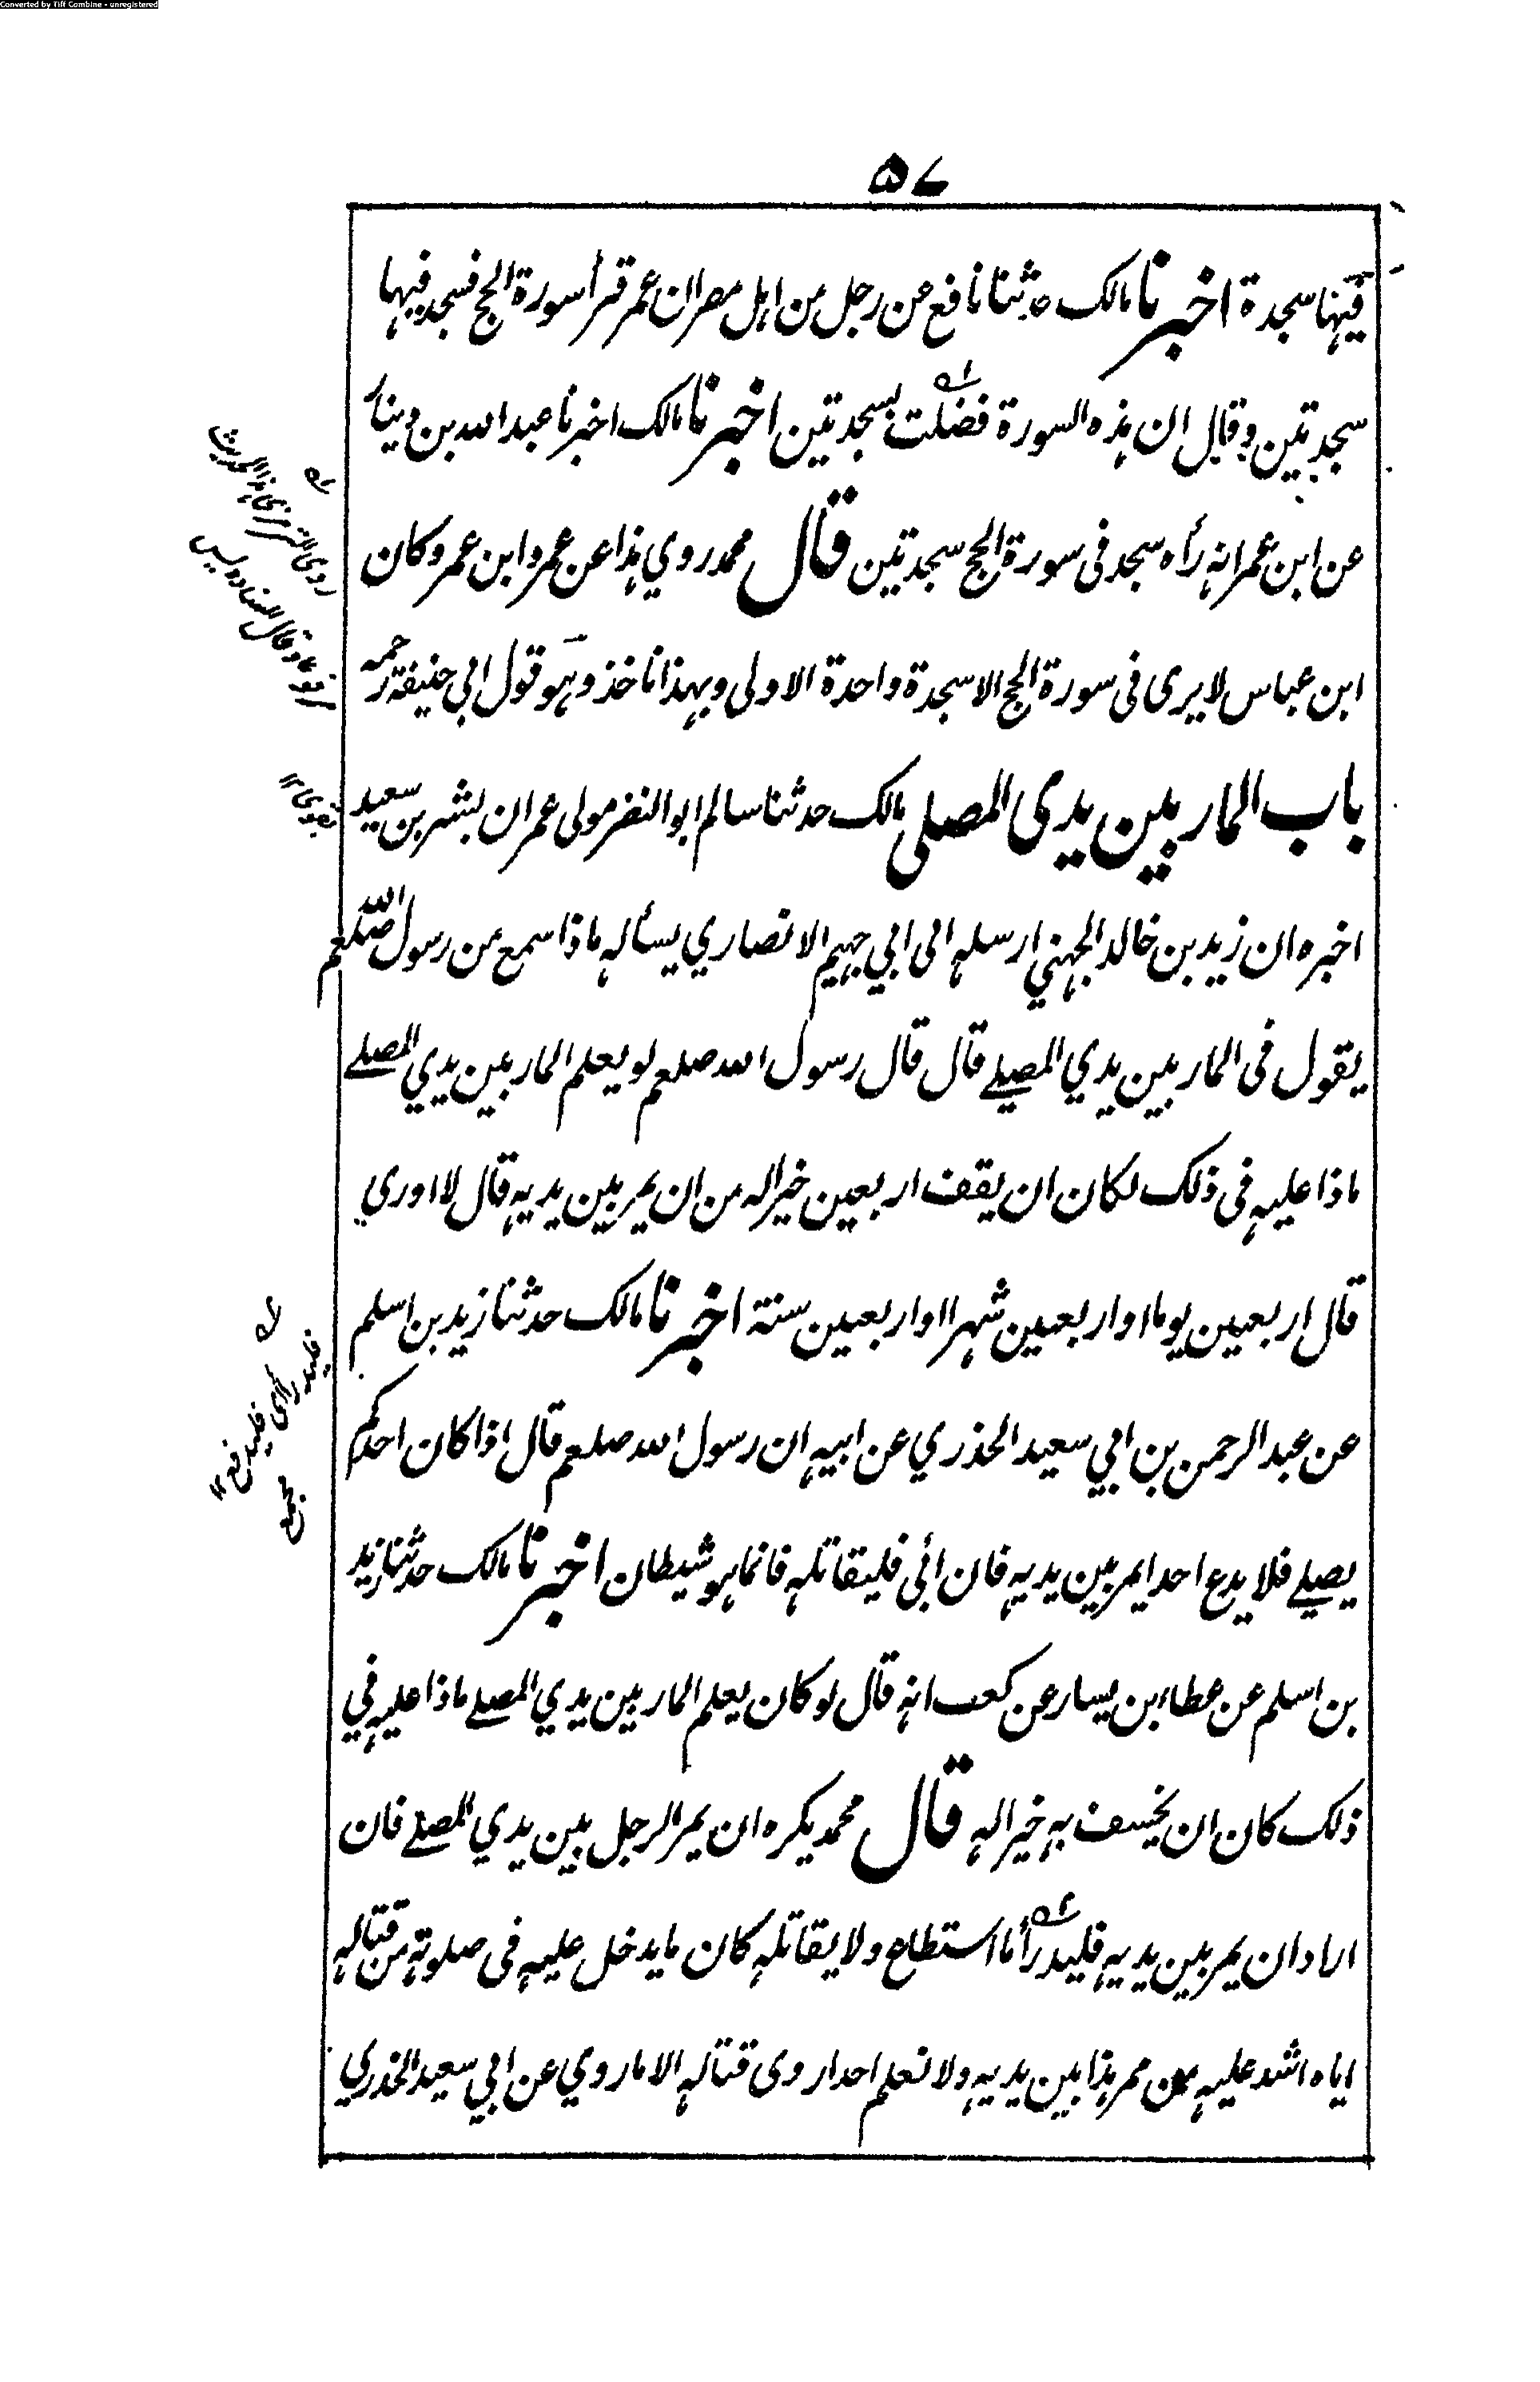 Converted by Tiff Combine - unregistered
۵۷
فيها سجدة اخبرنا مالك حدثنا نافع عن رجل من اهل مصر ان عمر قرأ سورة الحج فسجد فيها
سجدتين وقال ان هذه السورة فضلت بسجدتين اخبرنا مالك اخبرنا عبد الله بن دينار
عن ابن عمر انه رأه سجد فى سورة الحج سجدتين قال محمد روي هذا عن عمر وابن عمر وكان
ابن عباس لا يرى فى سورة الحج الا سجدة واحدة الاولى وبهذا ناخذ وهو قول ابي حنيفة رحمه
باب المار بين يدى المصلى مالك حدثنا سالم ابو النضر مولى عمر ان بشر بن سعيد
اخبره ان زيد بن خالد الجهني ارسله الى ابي جهيم الانصاري يسأله ماذا سمع من رسول الله صلعم
يقول فى المار بين يدي المصلے قال قال رسول الله صلعم لو يعلم المار بين يدي المصلے
ماذا عليه فى ذلك لكان ان يقف اربعين خيرا له من ان يمر بين يديه قال لا ادري
قال اربعين يوما او اربعين شهرا او اربعين سنة اخبرنا مالك حدثنا زيد بن اسلم
عن عبد الرحمن بن ابي سعيد الخدري عن ابيه ان رسول الله صلعم قال اذا كان احدكم
يصلے فلا يدع احدا يمر بين يديه فان ابى فليقاتله فانما هو شيطان اخبرنا مالك حدثنا زيد
بن اسلم عن عطاء بن يسار عن كعب انه قال لو كان يعلم المار بين يدي المصلے ماذا عليه في
ذلك كان ان يخسف به خيرا له قال محمد يكره ان يمر الرجل بين يدي المصلے فان
اراد ان يمر بين يديه فليدرأ ما استطاع ولا يقاتله كان ما يدخل عليه فى صلوته من قتاله
اياه اشد عليه من ممر هذا بين يديه ولا نعلم احدا روى قتاله الا ما روي عن ابي سعيد الخدري
له
روى الترمذى هذا الحديث
وقال اسناده ليس
بقوى ١٢
٢ه
فليدرأ اى فليدفع ١٢
مجمع